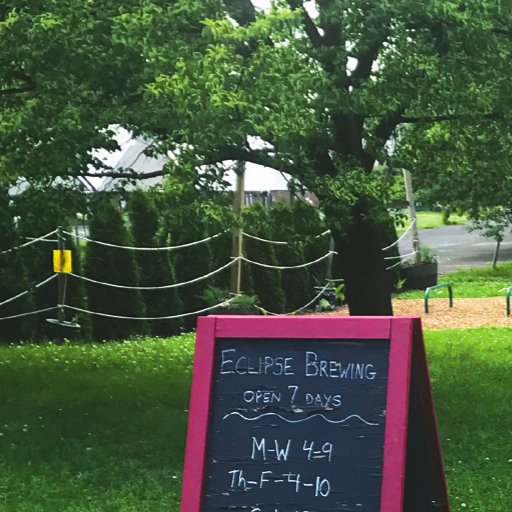 ECLIPSE BREWING
OPEN 7 DAYS
M-W 4-9
Th-F-4-10